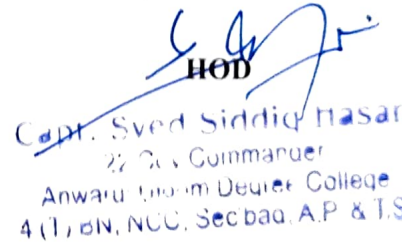 HOD
Capt. Syed Siddiq Hasan
Commander
Anwarul Uloom Degree College
4 (T) BN, NCC, Sec'bad, A.P & T.S